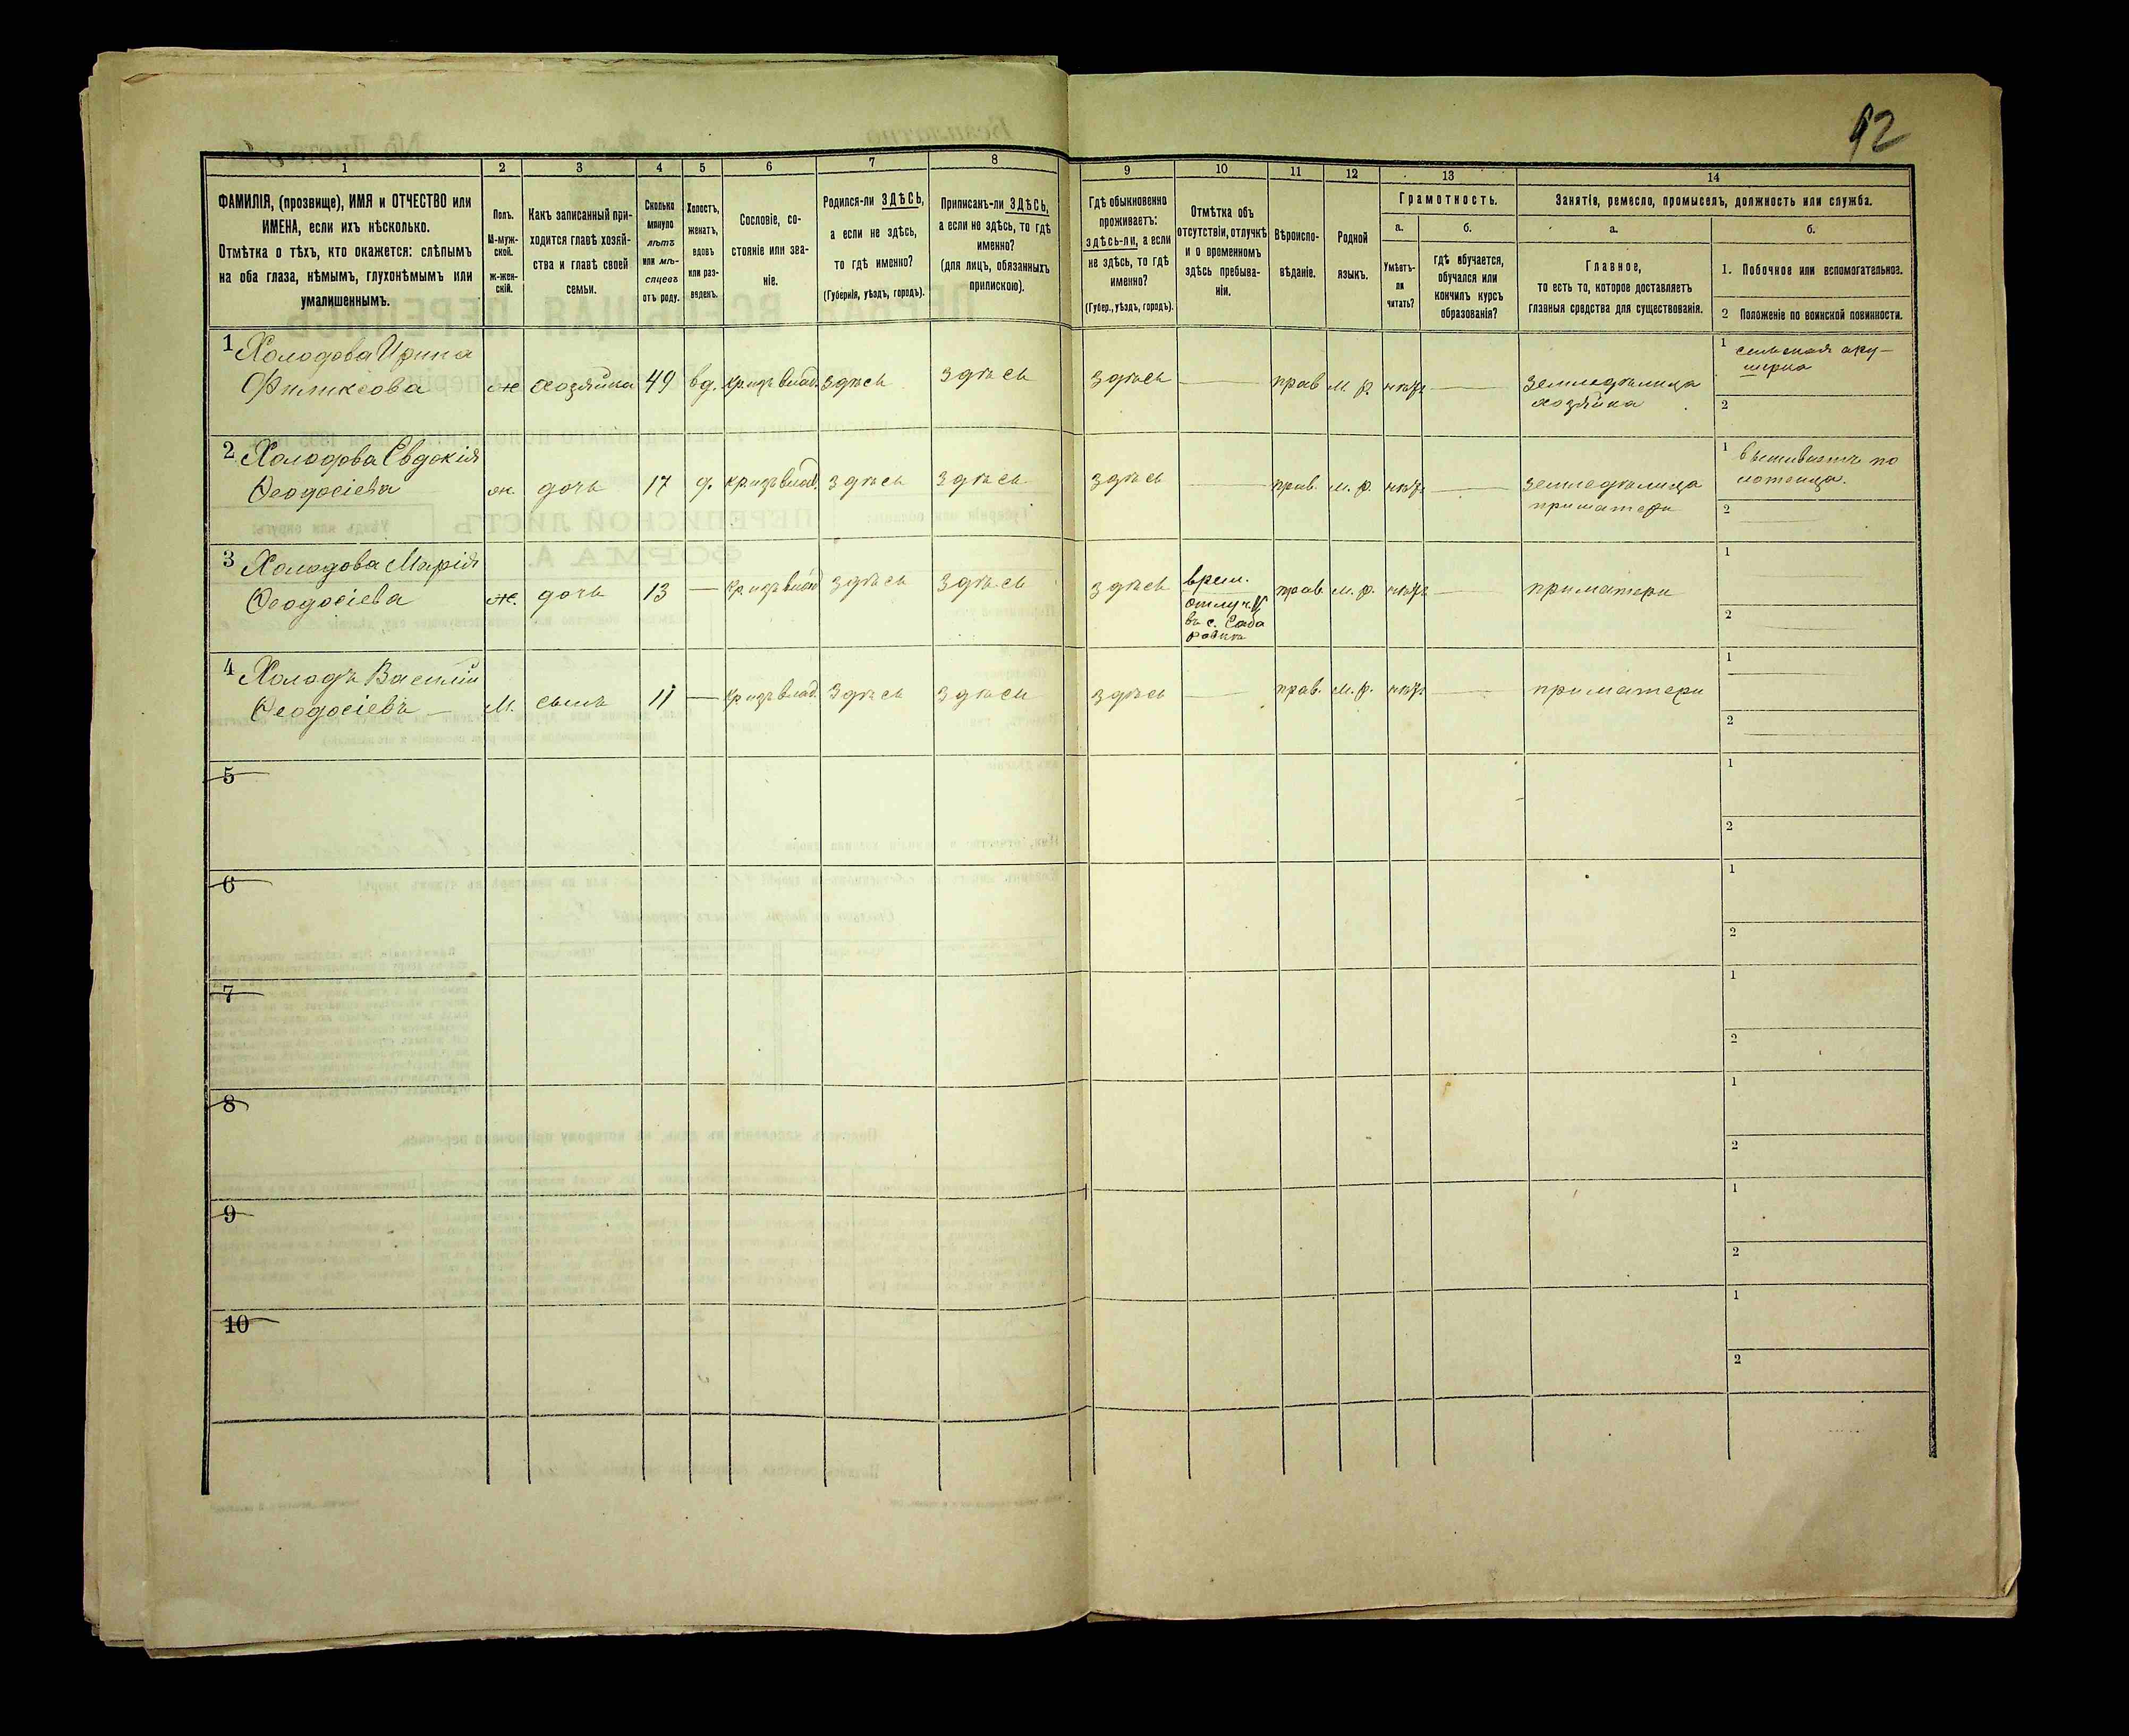 12
1 2 3 4 5 6 7 8 9 10 11 12 13 14
ФАМИЛІЯ, (прозвище), ИМЯ и ОТЧЕСТВО или
ИМЕНА, если ихъ нѣсколько.
Отмѣтка о тѣхъ, кто окажется: слѣпымъ
на оба глаза, нѣмымъ, глухонѣмымъ или
умалишеннымъ.
Полъ.
М-муж-
ской.
ж-жен-
скій.
Какъ записанный при-
ходится главѣ хозяй-
ства и главѣ своей
семьи.
Сколько
минуло
лѣтъ
или мѣ-
сяцевъ
отъ роду.
Холостъ,
женатъ,
вдовъ
или раз-
веденъ.
Сословіе, со-
стояніе или зва-
ніе.
Родился-ли ЗДѢСЬ,
а если не здѣсь,
то гдѣ именно?
(Губернія, уѣздъ, городъ).
Приписанъ-ли ЗДѢСЬ,
а если не здѣсь, то гдѣ
именно?
(для лицъ, обязанныхъ
припискою).
Гдѣ обыкновенно
проживаетъ:
здѣсь-ли, а если
не здѣсь, то гдѣ
именно?
(Губер., уѣздъ, городъ).
Отмѣтка объ
отсутствіи, отлучкѣ
и о временномъ
здѣсь пребыва-
ніи.
Вѣроиспо-
вѣданіе.
Родной
языкъ.
Грамотность.
а.
Умѣетъ-
ли
читать?
б.
гдѣ обучается,
обучался или
кончилъ курсъ
образованія?
Занятія, ремесло, промыселъ, должность или служба.
а.
Главное,
то есть то, которое доставляетъ
главныя средства для существованія.
б.
1. Побочное или вспомогательное.
2 Положеніе по воинской повинности.
1 Холодова Ирина
ж хозяйка 49 вд. кр. изъ влад. здѣсь здѣсь здѣсь — прав м. р. нѣтъ — земледѣлица
хозяйка
1 сельская аку-
шерка
2
2 Холодова Евдокія
Ѳеодосіева ж. дочь 17 д. кр. изъ влад. здѣсь здѣсь здѣсь — прав. м. р. нѣтъ — земледѣлица
при матери
1 вышиваетъ по
лотенца.
2
3 Холодова Марія
Ѳеодосіева ж. дочь 13 — кр. изъ влад здѣсь здѣсь здѣсь врем.
отлуч.
въ с.
прав м. р. нѣтъ — при матери
1
2
4 Холодъ Василій
Ѳеодосіевъ — м. сынъ 11 — кр. изъ влад. здѣсь здѣсь здѣсь — прав. м. р. нѣтъ — при матери
1
2
5
1
2
6
1
2
7
1
2
8
1
2
9
1
2
10
1
2